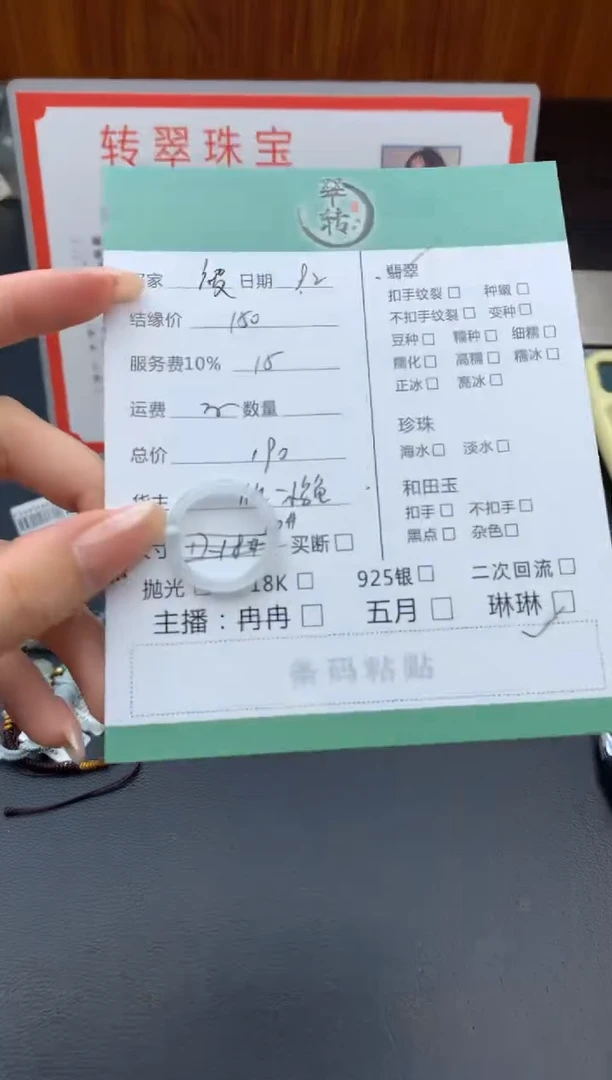 转翠珠宝
翠
转
家 日期 9.2
结缘价 150
服务费10% 15
运费 数量
总价 190
货主
寸 买断 □
抛光 □ 18K □ 925银 □ 二次回流 □
主播：冉冉 □ 五月 □ 琳琳 □
条码粘贴
翡翠
扣手纹裂 □ 种嫩 □
不扣手纹裂 □ 变种 □
豆种 □ 糯种 □ 细糯 □
糯化 □ 高糯 □ 糯冰 □
正冰 □ 高冰 □
珍珠
海水 □ 淡水 □
和田玉
扣手 □ 不扣手 □
黑点 □ 杂色 □